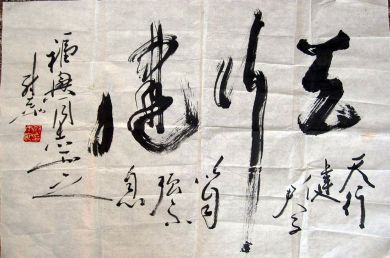 天行健
天行
健
君子
以自
强不
息
同志正之